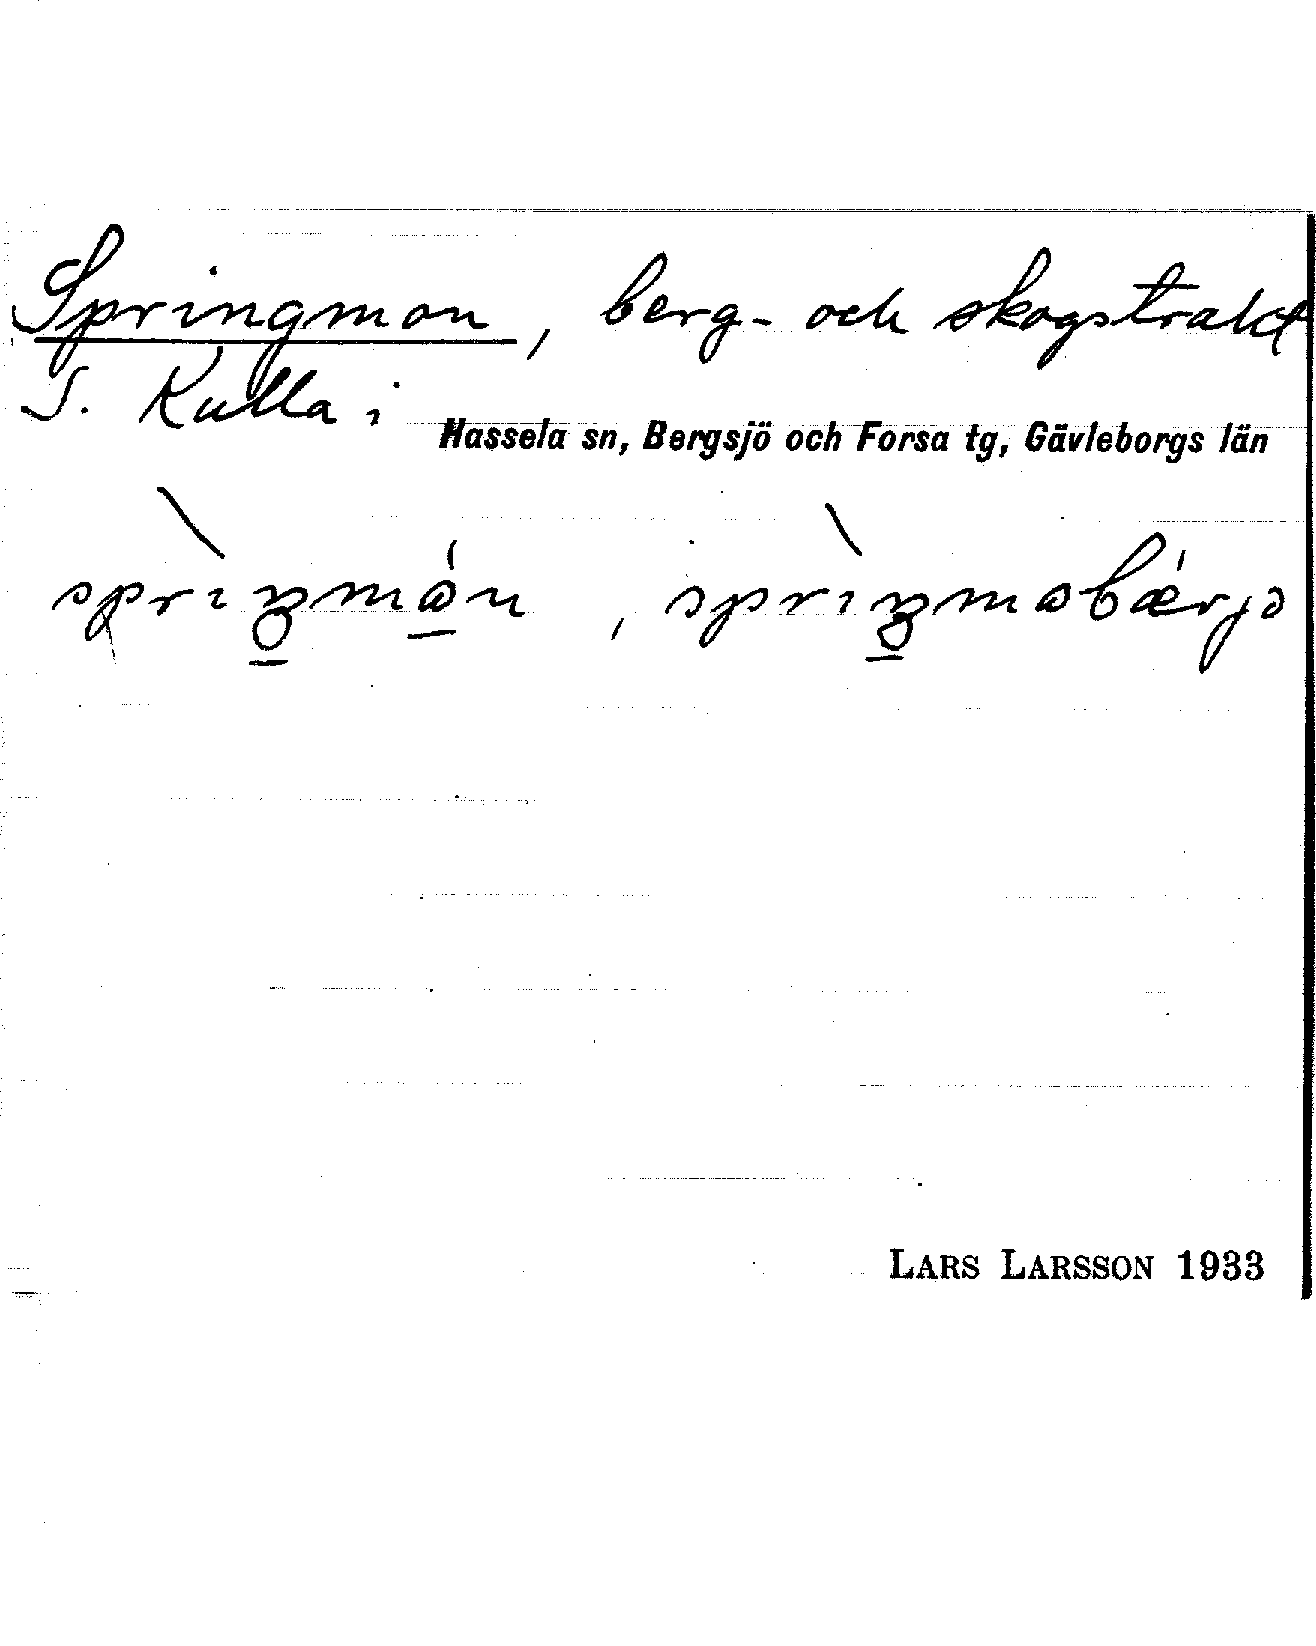 Springmon, berg- och skogstrakt
S. Kulla i Hassela sn, Bergsjö och Forsa tg, Gävleborgs län
LARS LARSSON 1933